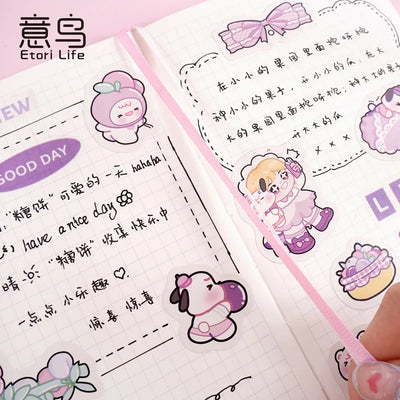 意鸟
Etori Life
EW
GOOD DAY
"糖饼"可爱的一天 hahaha
have a nice day
晴 "糖饼"收集快乐中
一点点小乐趣
惊喜 惊喜
在小小的果园里面挖呀挖
种小小的果子,开小小的瓜,在大
大的果园里面挖呀挖,种大大的果子
开大大的瓜
x x x
L